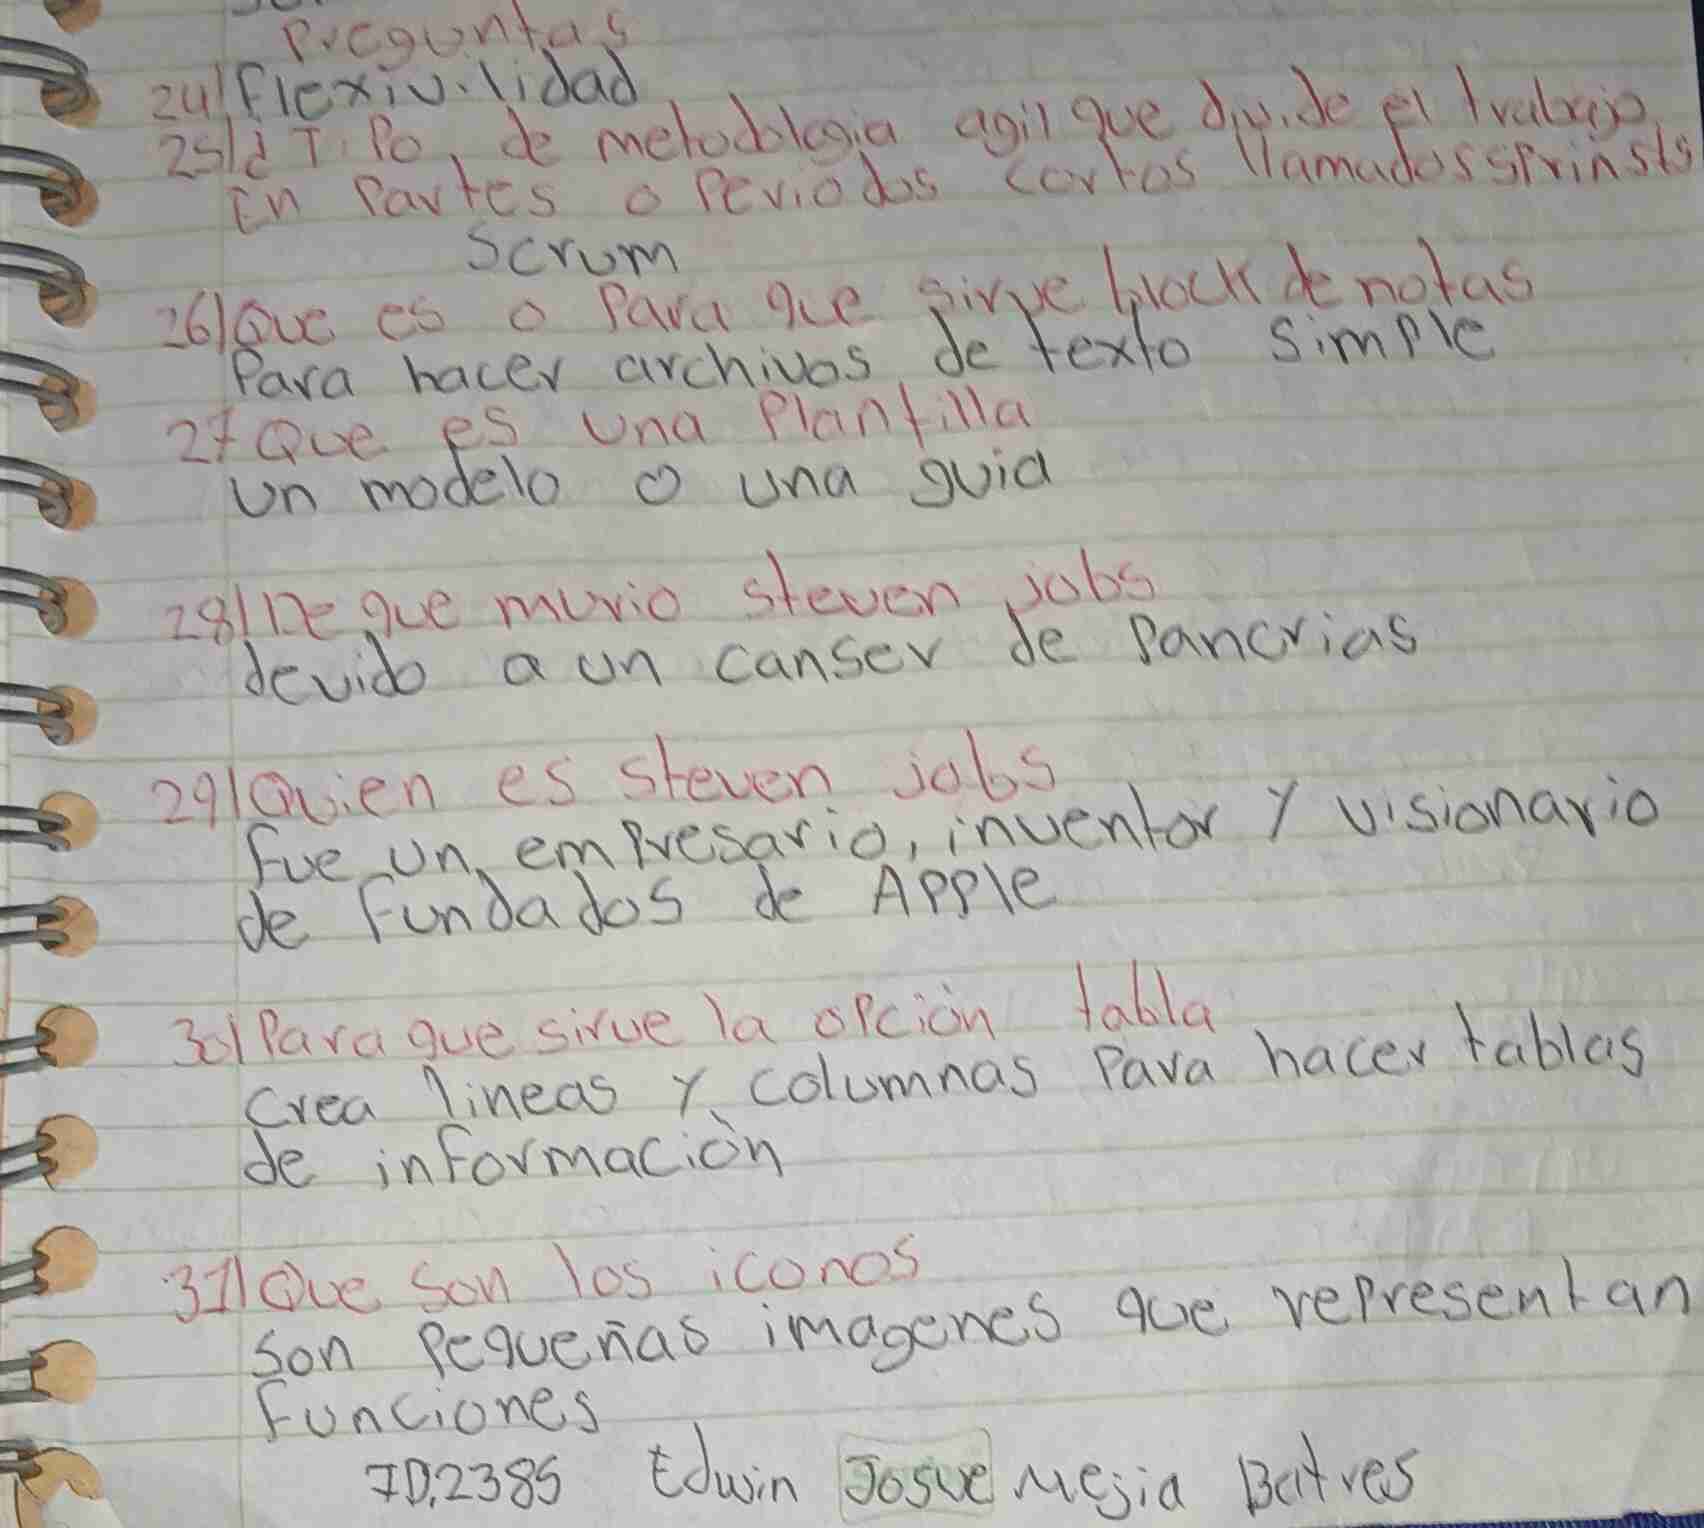 Preguntas
24) flexivilidad
25) d Tipo, de metodologia agil que divide el trabajo
En Partes o Periodos cortos llamados sprinsts
Scrum
26) Que es o Para que sirve block de notas
Para hacer archivos de texto simple
27 Que es una Plantilla
un modelo o una guia
28) De que murio steven jobs
devido a un canser de Pancrias
29) Quien es steven jobs
Fue un empresario, inventor y visionario
de Fundados de Apple
30) Para que sirve la opción tabla
Crea lineas y columnas Para hacer tablas
de información
31) Que son los iconos
son Pequeñas imagenes que representan
Funciones
ID.2385 Edwin Josue Mejia Batres